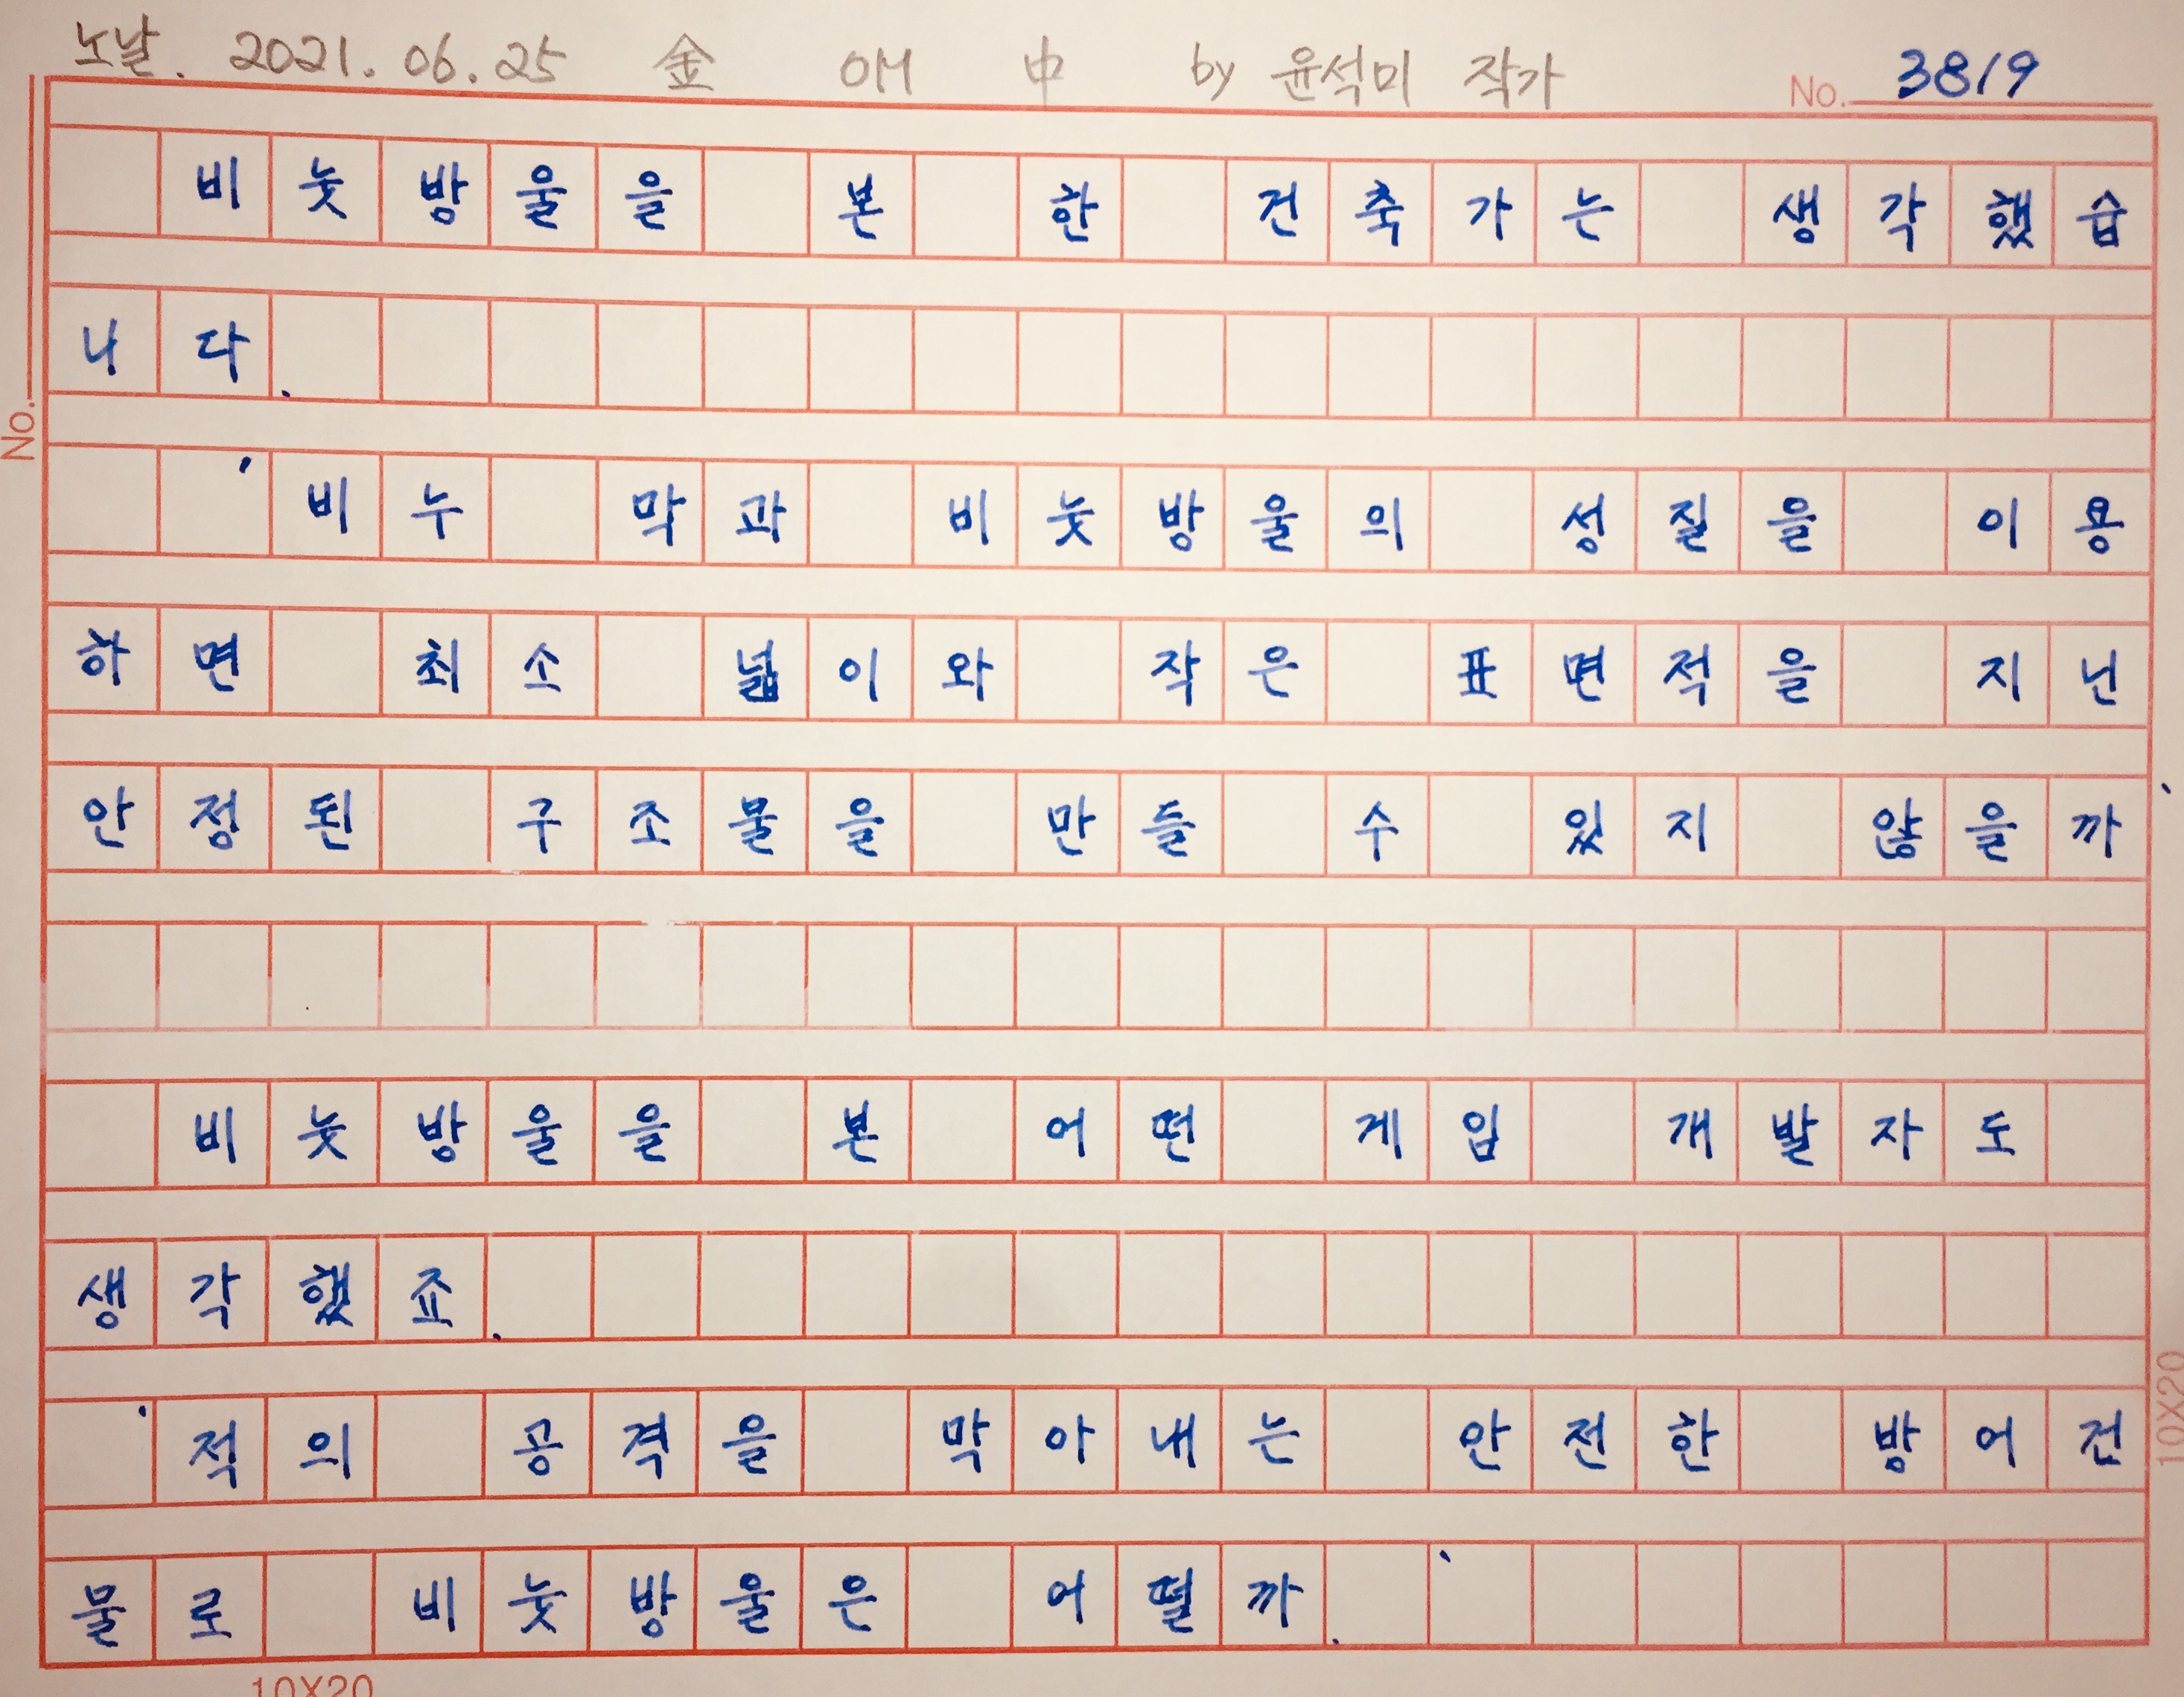 노날. 2021. 06. 25 金 OM 中 by 윤석미 작가
No. 3819
비눗방울을 본 한 건축가는 생각했습
니다.
'비누 막과 비눗방울의 성질을 이용
하면 최소 넓이와 작은 표면적을 지닌
안정된 구조물을 만들 수 있지 않을까'
비눗방울을 본 어떤 게임 개발자도
생각했죠.
'적의 공격을 막아내는 안전한 방어건
물로 비눗방울은 어떨까.'
No.
10X20
10X20